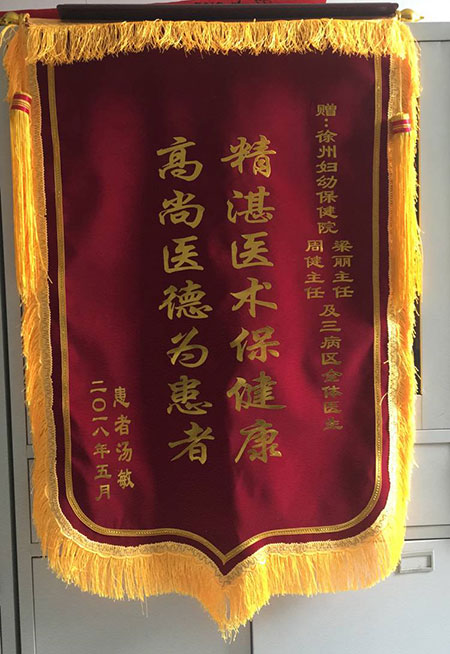 赠:徐州妇幼保健院 梁丽主任
周健主任 及三病区全体医生
精湛医术保健康
高尚医德为患者
患者汤敏
二〇一八年五月